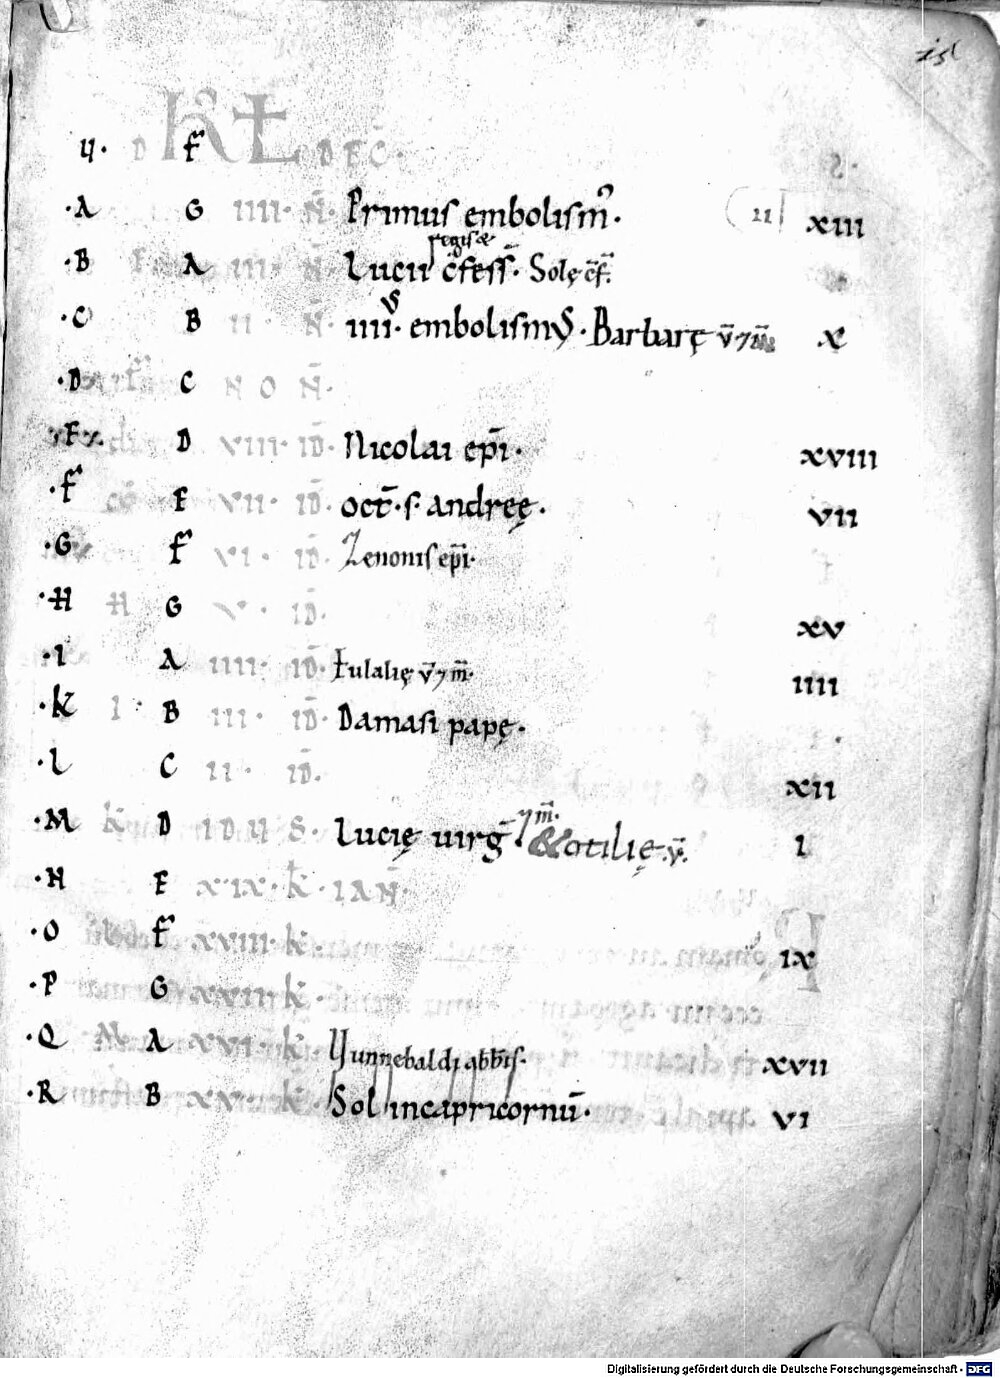 151
.V. D F KL DEC.
.A G IIII. N̄. Primus embolism̄. II XIII
regis &
.B F A III. N̄. Lucii c̄fess̄. Solę c̄f.
.C B II N̄. IIII.us embolismus. Barbarę v̄ ⁊ m̄ X
.D C NON̄.
.E. D VIII. ID̄. Nicolai ep̄i. XVIII
.F E VII. ID̄. Oct̄. s. andreę. VII
.G F VI. ID̄. Zenonis ep̄i.
.H H G V. ID̄. XV
.I A IIII. ID̄. Eulalię v̄ ⁊ m̄. IIII
.K I B III. ID̄. Damasi papę.
.L C II. ID̄. XII
⁊ m̄.
.M K D IDUS. Lucię uirḡ & otilię. v̄. I
.N E XIX. k. IAN̄.
.O F XVIII. k. IX
.P G XVII k.
.Q M A XVI. k. Vunnebaldi abb̄is. XVII
.R B XV. k. Sol in capricornū. VI
Digitalisierung gefördert durch die Deutsche Forschungsgemeinschaft - DFG